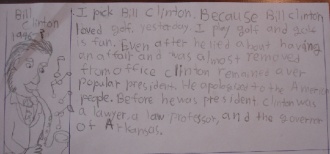 Bill
Clinton
I pick Bill Clinton. Because Bill clinton
loved golf. yesterday I play golf and golf
is fun. Even after he lied about having
an affair and was almost removed
from office clinton remained a very
popular president. He apologised to the America
people. Before he was president Clinton was
a lawyer, a law professor, and the governor
of Arkansas.